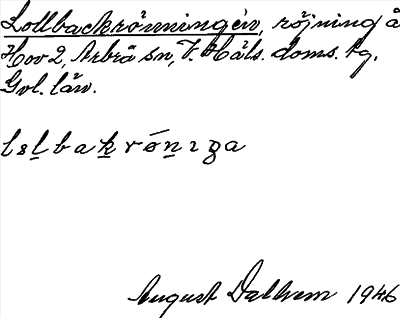 Lollbackrönningen, röjning å
Hov 2, Arbrå sn, V. Häls. doms. tg.
Gvl. län.
lslbakrønıga
August Dalhem 1946